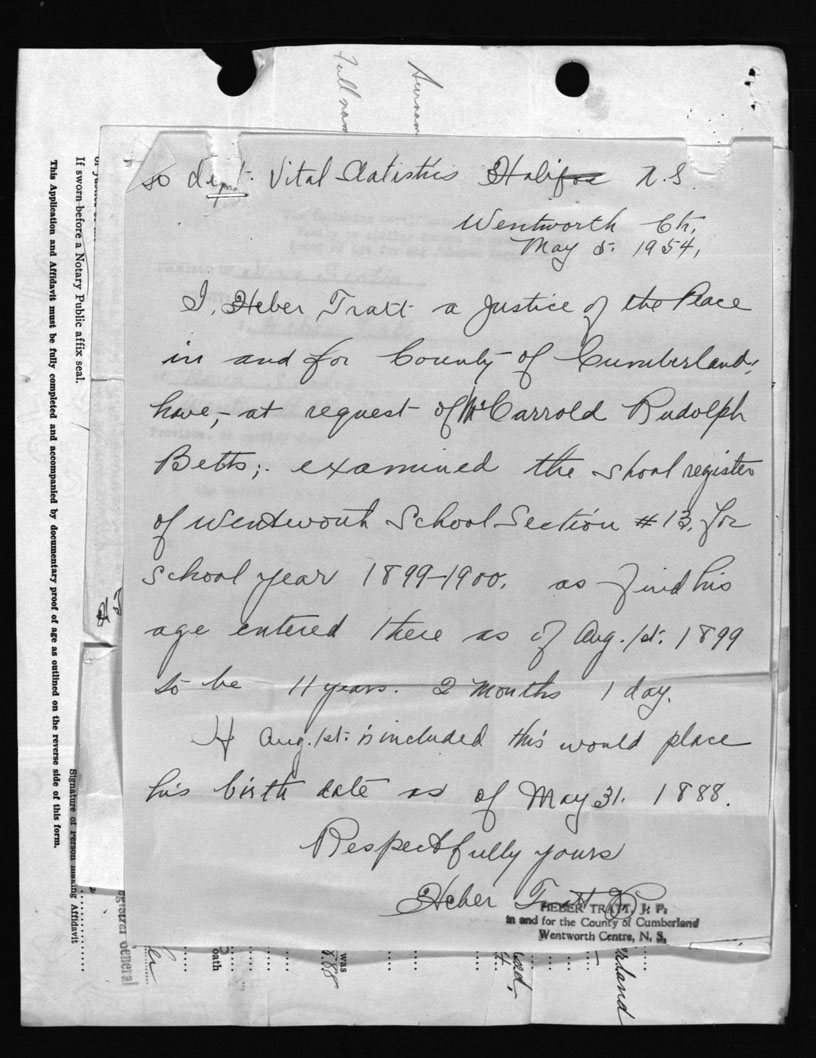 to dept. Vital Statistics Halifax N.S.
Wentworth Ctr.
May 5. 1954,
I, Heber Tratt a Justice of the Peace
in and for County of Cumberland;
have,- at request of Mr Carrold Rudolph
Betts;. examined the shool register
of Wentworth School Section #13. for
School year 1899-1900. as find his
age entered there as of Aug. 1st. 1899
to be 11 years. 2 Months 1 day.
If Aug. 1st. is included this would place
his birth date as of May 31. 1888.
Respectfully yours
Heber Tratt JP
HEBER TRATT, J. P.
in and for the County of Cumberland
Wentworth Centre, N. S.
If sworn before a Notary Public affix seal.
This Application and Affidavit must be fully completed and accompanied by documentary proof of age as outlined on the reverse side of this form.
Signature of Person making Affidavit
egistrar General
Full nam
Surnam
was
oath